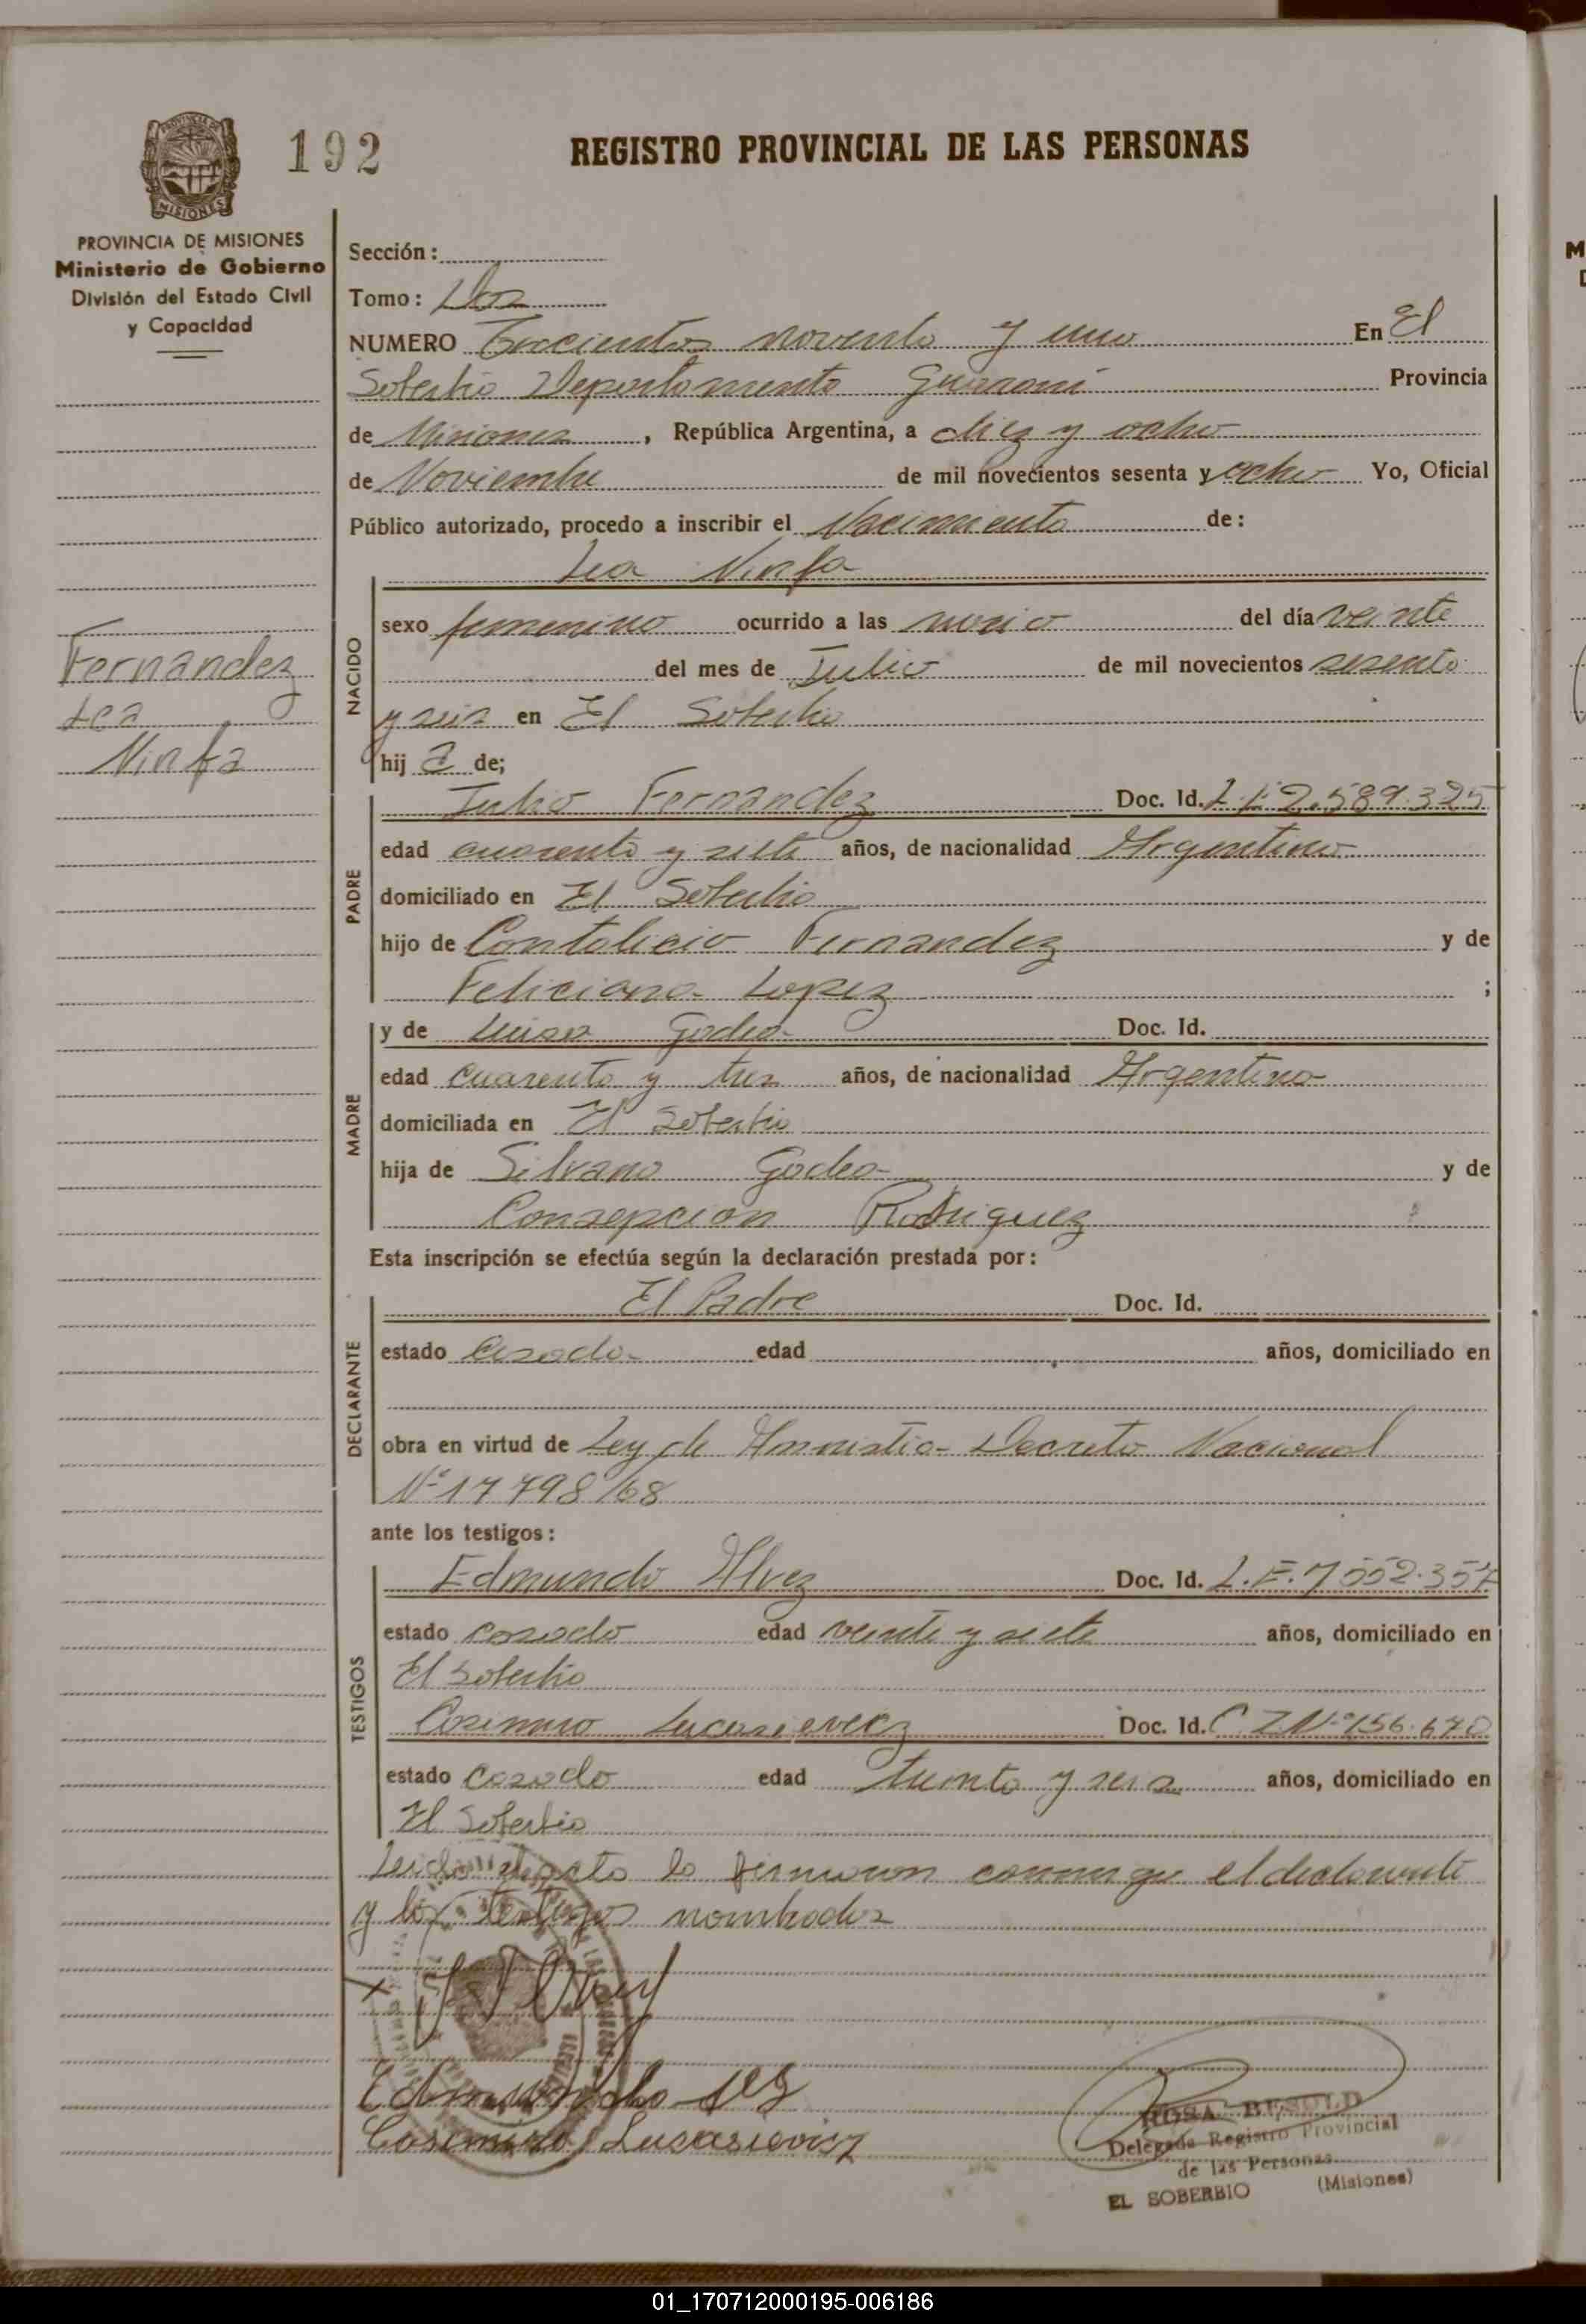 192
REGISTRO PROVINCIAL DE LAS PERSONAS
PROVINCIA DE MISIONES
Ministerio de Gobierno
División del Estado Civil
y Capacidad
Sección:
Tomo: Dos
NUMERO Trecientos novento y uno En El
Soberbio Departamento Guaraní Provincia
de Misiones, República Argentina, a diez y ocho
de Noviembre de mil novecientos sesenta y ocho Yo, Oficial
Público autorizado, procedo a inscribir el Nacimiento de:
Lea Ninfa
NACIDO
sexo femenino ocurrido a las del día veinte
del mes de Julio de mil novecientos sesenta
y seis en El Soberbio
hij a de;
Fernandez
Lea
Ninfa
PADRE
Julio Fernandez Doc. Id. L.E 2.589.325
edad cuarenta y siete años, de nacionalidad Argentino
domiciliado en El Soberbio
hijo de Contalicio Fernandez y de
Feliciana Lopez ;
MADRE
y de Luisa Godoa Doc. Id.
edad cuarenta y tres años, de nacionalidad Argentina
domiciliada en El Soberbio
hija de Silvano y de
Consepcion Rodriguez
Esta inscripción se efectúa según la declaración prestada por:
DECLARANTE
El Padre Doc. Id.
estado Casado edad años, domiciliado en
obra en virtud de Ley de Amnistia- Decreto Nacional
Nº 17798/68
ante los testigos:
TESTIGOS
Edmundo Alvez Doc. Id. L.E. 7552.357
estado casado edad veinte y siete años, domiciliado en
El Soberbio
Casimiro Lucasievicz Doc. Id. C. I Nº 156.670
estado casado edad treinta y seis años, domiciliado en
El Soberbio
Leido el acta la firmaron conmigo el declarante
y los testigos nombrados
Casimiro Lucasievicz
ROSA BESOLD
Delegada Registro Provincial
de las Personas
EL SOBERBIO (Misiones)
01_170712000195-006186